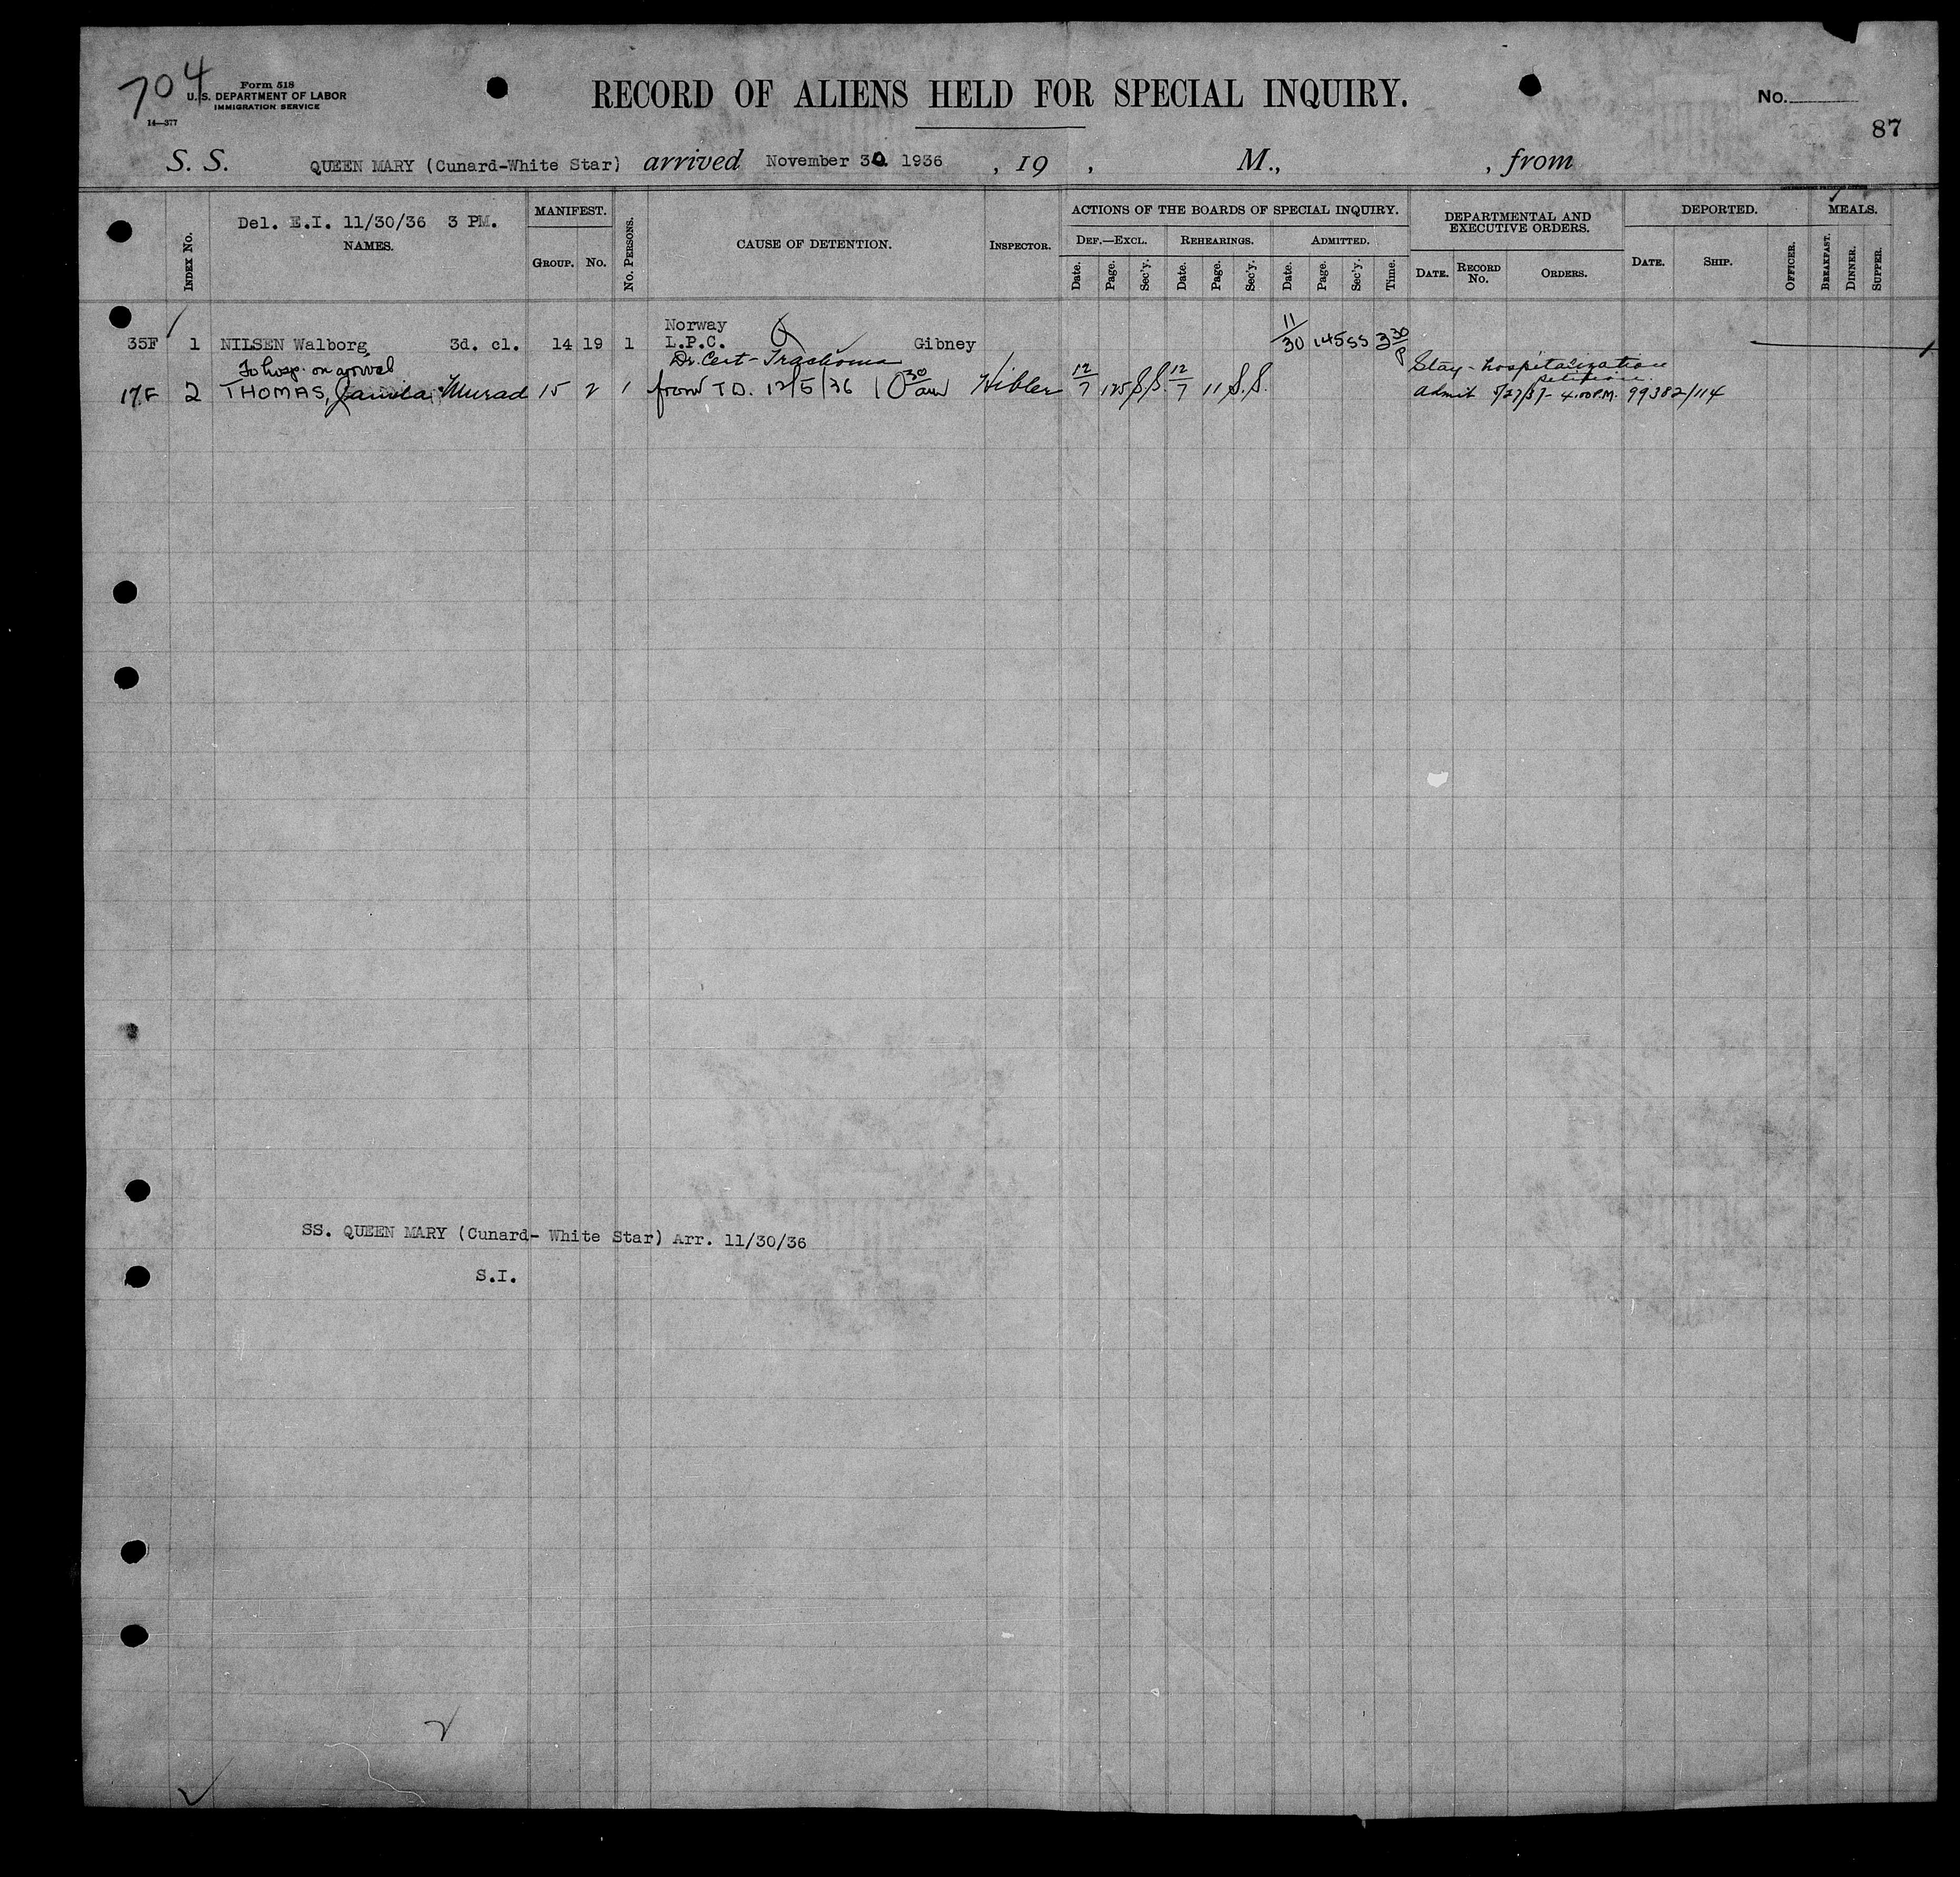 704
Form 518
U. S. DEPARTMENT OF LABOR
IMMIGRATION SERVICE
14—377
RECORD OF ALIENS HELD FOR SPECIAL INQUIRY.
No.
87
S. S. QUEEN MARY (Cunard-White Star) arrived November 30 1936 , 19 , M., , from
Del. E.I. 11/30/36 3 PM.
INDEX No. NAMES. MANIFEST. GROUP. No. No. PERSONS. CAUSE OF DETENTION. INSPECTOR.
ACTIONS OF THE BOARDS OF SPECIAL INQUIRY.
DEF.—EXCL. REHEARINGS. ADMITTED.
Date. Page. Sec'y. Date. Page. Sec'y. Date. Page. Sec'y. Time.
DEPARTMENTAL AND EXECUTIVE ORDERS.
DATE. RECORD No. ORDERS.
DEPORTED.
DATE. SHIP. OFFICER.
MEALS.
BREAKFAST. DINNER. SUPPER.
Norway
35F 1 NILSEN Walborg 3d. cl. 14 19 1 L.P.C. Gibney 11/30 145 SS 3 30 P
To hosp. on arrival Dr. Cert - Trachoma Stay - hospitalization
petition.
17F 2 THOMAS, Jamila Murad 15 2 1 from T.D. 12/5/36 10 30 am Hibler 12/7 125 S.S. 12/7 11 S.S. Admit 5/27/37- 4.00 P.M. 99382/114
SS. QUEEN MARY (Cunard- White Star) Arr. 11/30/36
S.I.